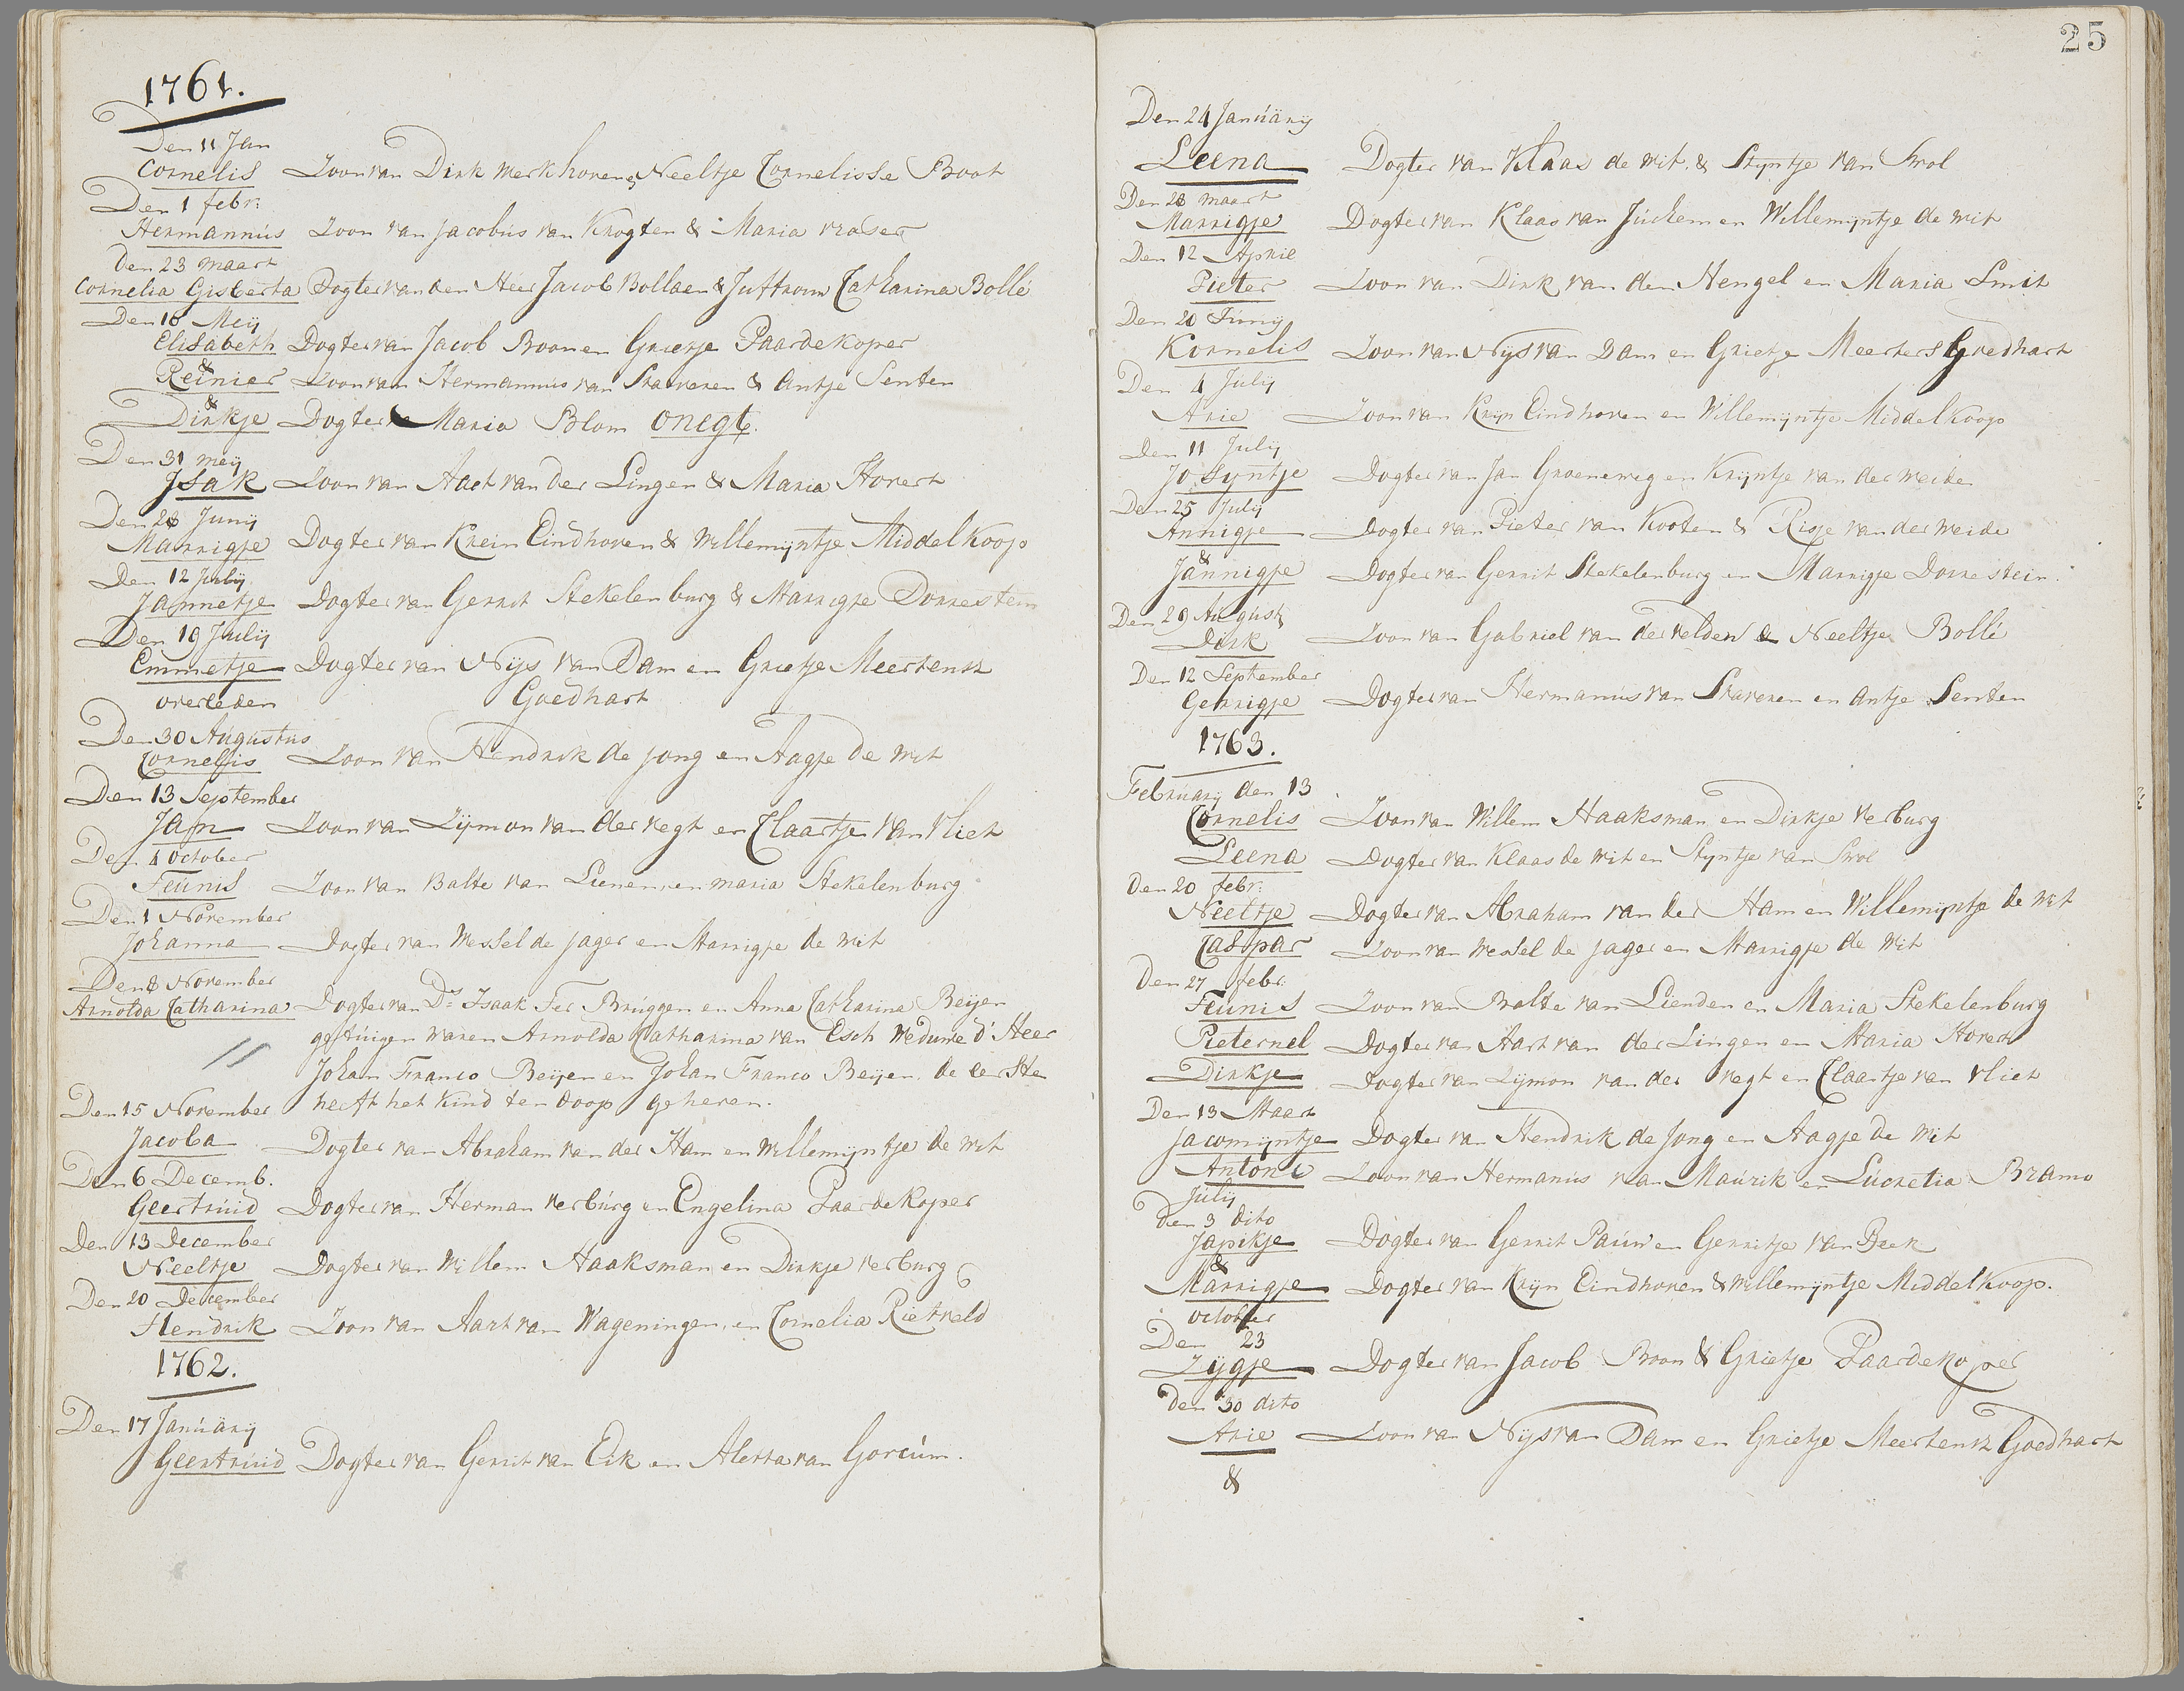 1761.
Den 11 Jan
Cornelis Zoon van Dirk Merkhoven & Neeltje Cornelisse Boot
Den 1 febr:
Hermannus Zoon van Jacobus van Krogten & Maria Vraser
Den 23 maart
Cornelia Gisberta Dogter van den Heer Jacob Bollaen & Juffrouw Catharina Bollé
Den 10 Meij
Elisabeth Dogter van Jacob Boon en Grietje Paardekoper
&
Reinier Zoon van Hermannus van Staveren & Antje Senten
&
Dirkje Dogter Maria Blom onegt.
Den 31 meij
Isak Zoon van Aart van der Lingen & Maria Hovert
Den 28 Junij
Marrigje Dogter van Krein Eindhoven & Willemijntje Middelkoop
Den 12 Julij
Jannetje Dogter van Gerrit Stekelenburg & Marrigje Dorrestein
Den 19 Julij
Emmetje Dogter van Nijs van Dam en Grietje Meertensz
overleden Goedhart
Den 30 Augustus
Cornelis Zoon van Hendrik de jong en Aagje de Wit
Den 13 September
Jan Zoon van Zijmon van der Vegt en Claartje van Vliet
Den 4 October
Teunis Zoon van Balte van Lienen, en maria Stekelenburg
Den 1 November
Johanna Dogter van Wessel de jager en Marrigje de Wit
Den 8 November
Arnolda Catharina Dogter van Ds Isaak Ter Bruggen en Anna Catharina Beijen
getuigen waren Arnolda Catharina van Esch Weduwe d' Heer
Johan Franco Beijen en Johan Franco Beijen, de eerste
heeft het kind ten doop geheven.
Den 15 November
Jacoba Dogter van Abraham van der Ham en Willemijntje de Wit
Den 6 Decemb.
Geertruid Dogter van Herman Verburg en Engelina Paardekoper
Den 13 December
Neeltje Dogter van Willem Haaksman en Dirkje Verburg
Den 20 December
Hendrik Zoon van Aart van Wageningen, en Cornelia Rietveld
1762.
Den 17 Januarij
Geertruid Dogter van Gerrit van Eik en Aletta van Gorcum.
25
Den 24 Januarij
Leena Dogter van Klaas de Wit & Stijntje van Swol
Den 28 maart
Marrigje Dogter van Klaas van Juchem en Willemijntje de Wit
Den 12 April
Pieter Zoon van Dirk van den Hengel en Maria Smit
Den 20 Junij
Kornelis Zoon van Nijs van Dam en Grietje Meertens Goedhart
Den 4 Julij
Arie Zoon van Krijn Eindhoven en Willemijntje Middelkoop
Den 11 Julij
Josyntje Dogter van Jan Groeneweg en Krijntje van der Weide
Den 25 Julij
Annigje Dogter van Pieter van Kooten & Risje van der Weide
&
Jannigje Dogter van Gerrit Stekelenburg en Marrigje Dorrestein.
Den 29 August
Dirk Zoon van Gabriel van der Velden & Neeltje Bollé
Den 12 September
Gerrigje Dogter van Hermanus van Staveren en Antje Senten
1763.
Februarij den 13
Cornelis Zoon van Willem Haaksman en Dirkje Verburg
Leena Dogter van Klaas de Wit en Stijntje van Swol
Den 20 febr:
Neeltje Dogter van Abraham van der Ham en Willemijntje de Wit
Caspar Zoon van Wessel de jager en Marrigje de Wit
Den 27 febr:
Teunis Zoon van Balte van Lienden en Maria Stekelenburg
Pieternel Dogter van Aart van der Lingen en Maria Hovert
Dirkje Dogter van Zijmon van der Vegt en Claartje van Vliet
Den 13 Maart
Jacomijntje Dogter van Hendrik de Jong en Aagje de Wit
Antoni Zoon van Hermanus van Maurik en Lucretia Bramo
Julij
Den 3 dito
Japikje Dogter van Gerrit Pauw en Gerritje van Beek
&
Marrigje Dogter van Krijn Eindhoven & Willemijntje Middelkoop.
October
Den 23
Zijgje Dogter van Jacob Boon & Grietje Paardekoper
den 30 dito
Arie Zoon van Nijs van Dam en Grietje Meertensz Goedhart
&